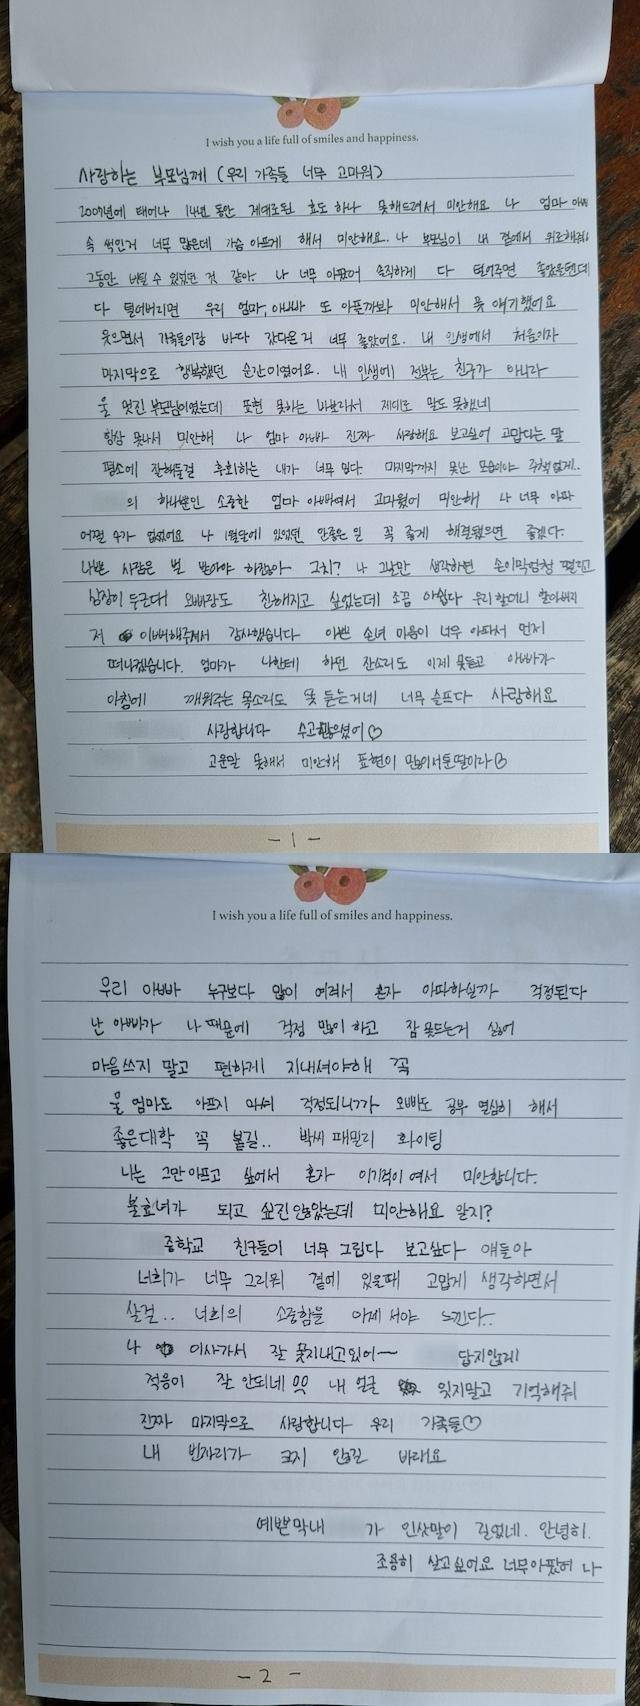 I wish you a life full of smiles and happiness.
사랑하는 부모님께 (우리 가족들 너무 고마워)
2007년에 태어나 14년 동안 제대로된 효도 하나 못해드려서 미안해요 나 엄마 아빠
속 썩인거 너무 많은데 가슴 아프게 해서 미안해요.. 나 부모님이 내 곁에서 위로해줘서
그동안 버틸 수 있었던 것 같아. 나 너무 아팠어 솔직하게 다 털어주면 좋았을텐데
다 털어버리면 우리 엄마, 아빠빠 또 아플까봐 미안해서 못 얘기했어요
웃으면서 가족들이랑 바다 갔다온거 너무 좋았어요. 내 인생에서 처음이자
마지막으로 행복했던 순간이였어요. 내 인생에 전부는 친구가 아니라
울 멋진 부모님이였는데 표현 못하는 바보라서 제대로 말도 못했네
항상 못나서 미안해 나 엄마 아빠빠 진짜 사랑해요 보고싶어 고맙다는 말
평소에 잘해둘걸 후회하는 내가 너무 밉다. 마지막까지 못난 모습이야 주책 없게..
의 하나뿐인 소중한 엄마 아빠여서 고마웠어 미안해 나 너무 아파
어쩔 수가 없었어요 나 1월달에 있었던 안좋은 일 꼭 좋게 해결됐으면 좋겠다.
나쁜 사람은 벌 받아야 하잖아 그치? 나 그날만 생각하면 손이막엄청 떨리고
심장이 두근대 오빠랑도 친해지고 싶었는데 조끔 아쉽다 우리 할머니 할아버지
저 이뻐해주셔서 감사했습니다 이쁜 손녀 마음이 너무 아파서 먼저
떠나겠습니다. 엄마가 나한테 하던 잔소리도 이제 못듣고 아빠빠가
아침에 깨워주는 목소리도 못 듣는거네 너무 슬프다 사랑해요
사랑합니다 수고많으셨어♡
고운말 못해서 미안해 표현이 많이서툰딸이라♡
- 1 -
I wish you a life full of smiles and happiness.
우리 아빠빠 누구보다 많이 여려서 혼자 아파하실까 걱정된다
난 아빠빠가 나때문에 걱정 많이 하고 잠 못드는거 싫어
마음쓰지 말고 편하게 지내셔야해 꼭
울 엄마도 아프지 마셔 걱정되니까 오빠도 공부 열심히 해서
좋은대학 꼭 붙길.. 박씨 패밀리 화이팅
나는 그만아프고 싶어서 혼자 이기적이여서 미안합니다.
불효녀가 되고 싶진 않았는데 미안해요 알지?
중학교 친구들이 너무 그립다 보고싶다 얘들아
너희가 너무 그리워 곁에 있을때 고맙게 생각하면서
살걸.. 너희의 소중함을 이제 서야 느낀다..
나 이사가서 잘 못지내고있어~ 답지않게
적응이 잘 안되네 내 얼굴 잊지말고 기억해줘
진짜 마지막으로 사랑합니다 우리 가족들♡
내 빈자리가 크지 않길 바래요
예쁜막내 가 인삿말이 길었네. 안녕히.
조용히 살고싶어요 너무아팠어 나
- 2 -